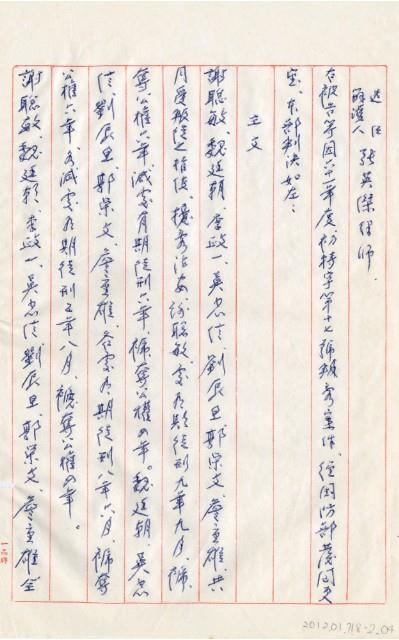 選任
辯護人 張英傑律師
右被告等因六十一年度初特字第十七號叛亂案件，經國防部發回更
審，本部判決如左：
主文
謝聰敏、魏廷朝、李政一、吳忠信、劉辰旦、郭榮文、詹重雄、共
謝聰敏、處有期徒刑九年九月，褫
奪公權六年，減處有期徒刑六年，褫奪公權四年。魏廷朝、吳忠
信、劉辰旦、郭榮文、詹重雄、各處有期徒刑八年六月，褫奪
公權六年，各減處有期徒刑五年八月，褫奪公權四年。
謝聰敏、魏廷朝、李政一、吳忠信、劉辰旦、郭榮文、詹重雄全
2012.01.718-2.04